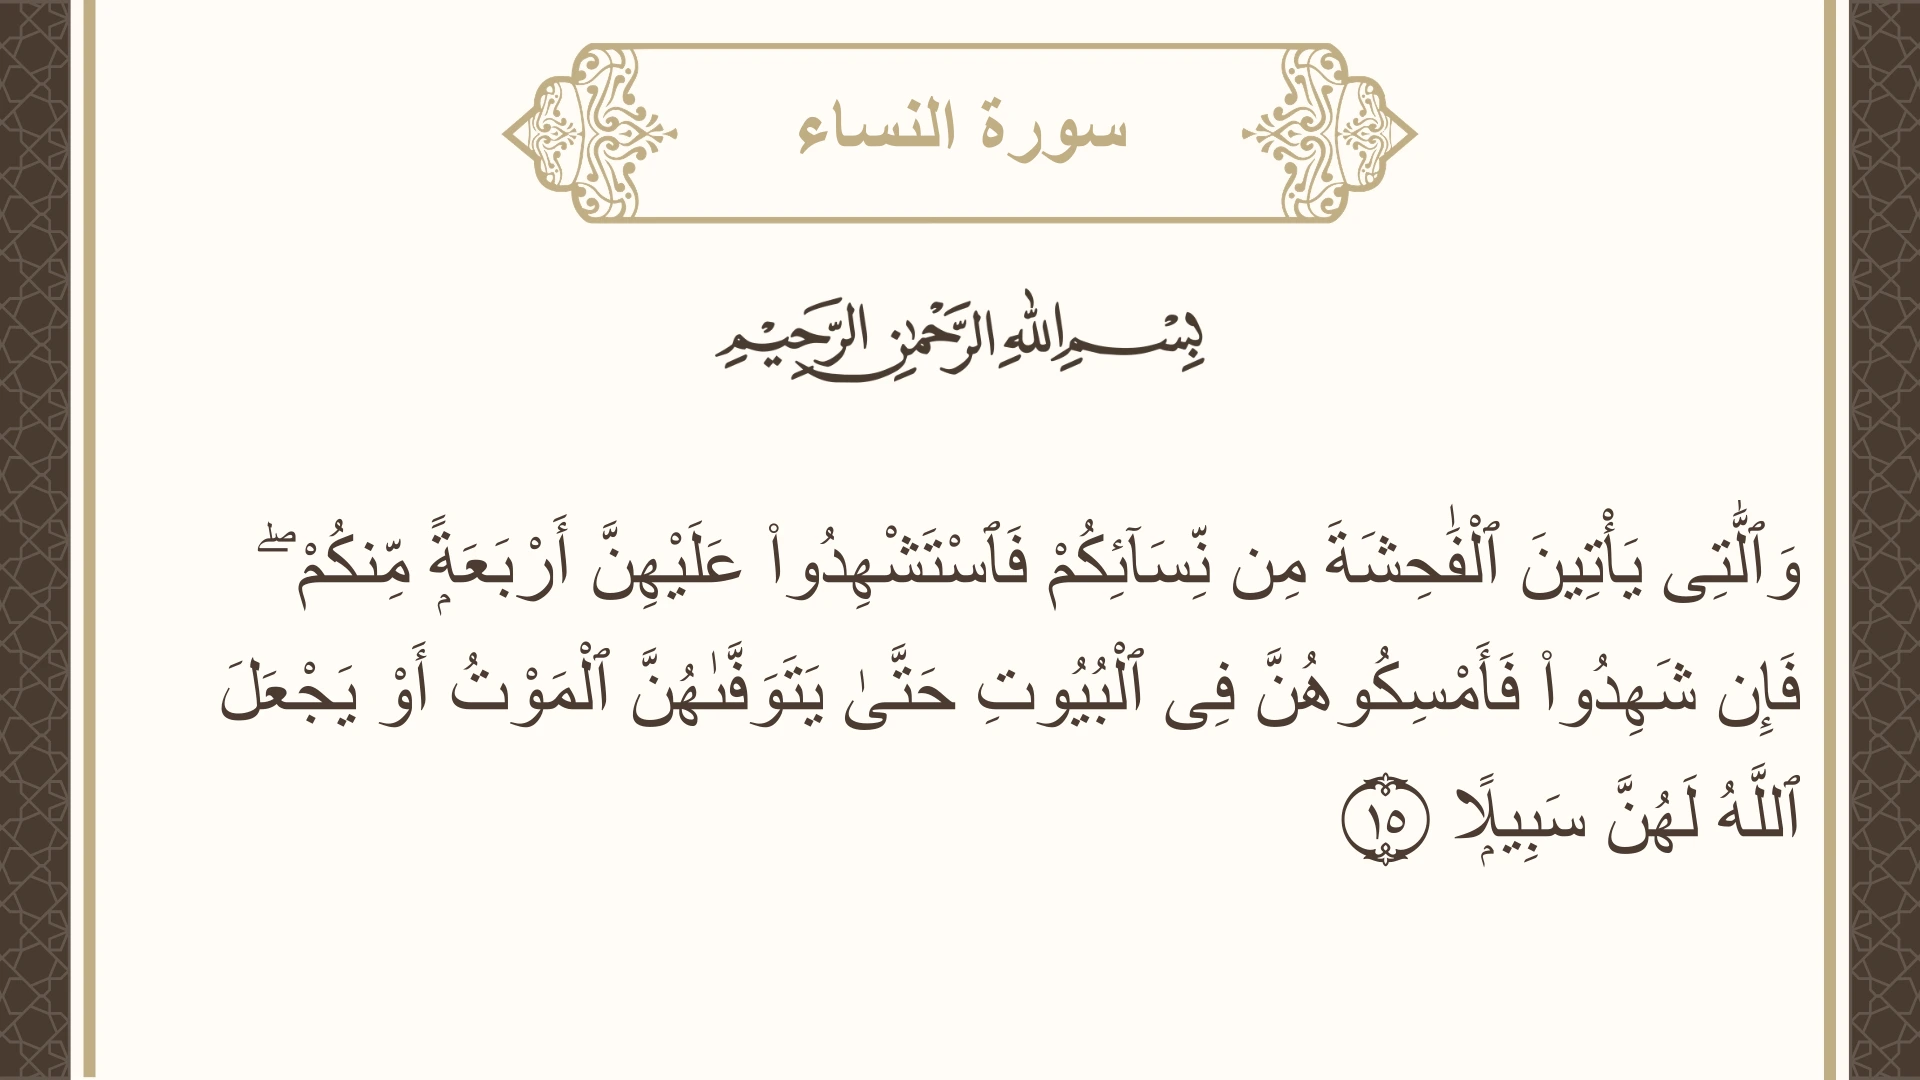 سورة النساء
بِسْمِ اللهِ الرَّحْمٰنِ الرَّحِيْمِ
وَٱلَّٰتِى يَأْتِينَ ٱلْفَٰحِشَةَ مِن نِّسَآئِكُمْ فَٱسْتَشْهِدُوا۟ عَلَيْهِنَّ أَرْبَعَةًۭ مِّنكُمْ ۖ
فَإِن شَهِدُوا۟ فَأَمْسِكُوهُنَّ فِى ٱلْبُيُوتِ حَتَّىٰ يَتَوَفَّىٰهُنَّ ٱلْمَوْتُ أَوْ يَجْعَلَ
ٱللَّهُ لَهُنَّ سَبِيلًۭا ١٥